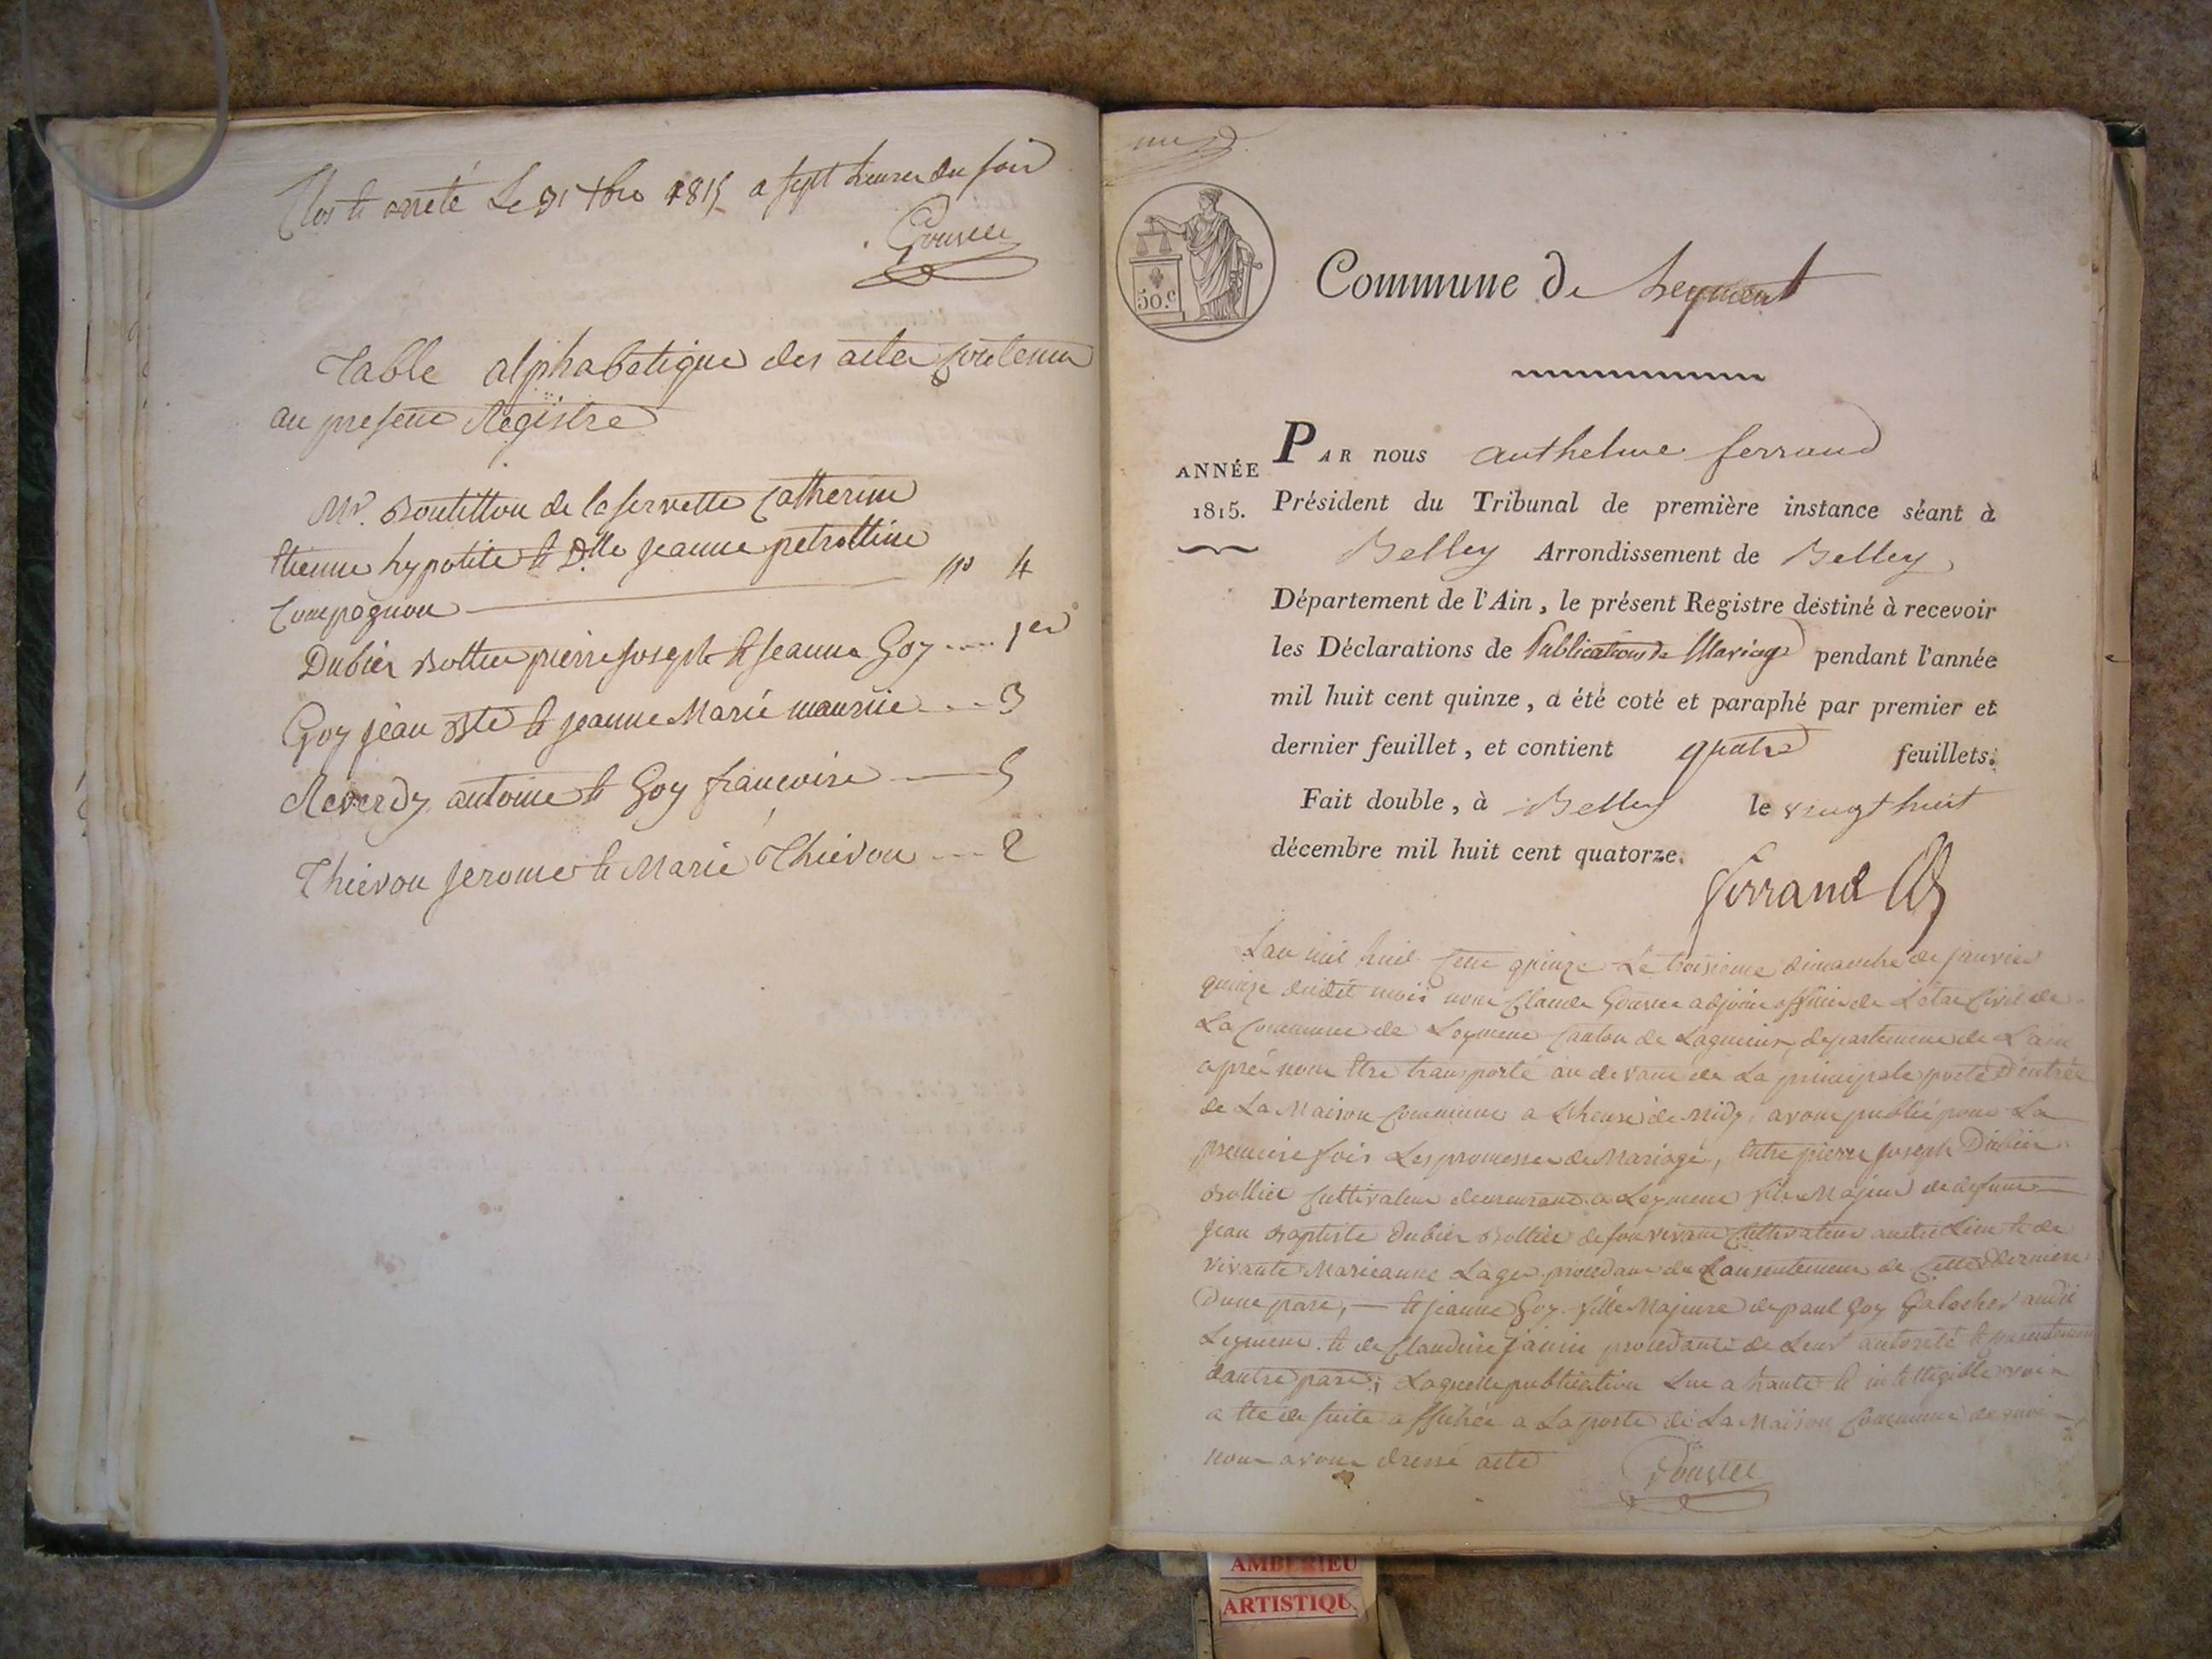 Clos et arrêté Le 31 Xbre 1815 a sept heures du soir
Gouvee
Table alphabetique des actes Contenu
au present Registre
Mr. Boutillon de la servette Catherin
Etienne hypolite et Dlle Jeanne petrolline
Compagnon
no 4
Dubier Bollier pierre Joseph et Jeanne Goy .... 1er
Goy jean Bte et jeanne Marie maurice ... 3
Reverdy antoine et Goy francoise 5
Thievon Jerome et Marie Thievon ... 2
50.c
Commune de Leyment
ANNÉE
1815.
PAR nous Anthelme ferrand
Président du Tribunal de première instance séant à
Belley Arrondissement de Belley,
Département de l'Ain, le présent Registre destiné à recevoir
les Déclarations de Publications de Mariage pendant l'année
mil huit cent quinze, a été coté et paraphé par premier et
dernier feuillet, et contient quatre feuillets.
Fait double, à Belley le vingt huit
décembre mil huit cent quatorze.
ferrand
Lan mil huit Cent quinze Le troisieme dimanche de janvier
quinze dudit mois nous Claude Gouvee adjoint officier de L'état Civil de
La Commune de Leyment Canton de Lagnieux, departement de L'ain
aprés nous Etre transporté au devant de La principale porte D'entrée
de La Maison Commune a L'heure de midy, avons publié pour La
premiere fois Les promesses de Mariage, Entre pierre Joseph Dubier
Bollier Cultivateur demeurant a Leyment fils Majeur de defunt
Jean Baptiste Dubier Bollier de son vivant Cultivateur audit Lieu et de
vivante Marieanne Lager procedant du Consentement de Cette derniere
D'une part, — et jeanne Goy fille Majeure de paul Goy Galocher audit
Leyment et de Claudine Janin procedante de Leur autorité et consentement
dautre part; Laquelle publication Lue a haute et intelligible voix
a été de suite affichée a La porte de La Maison Commune de quoi
nous avons dressé acte
Gouvee
AMBERIEU
ARTISTIQU